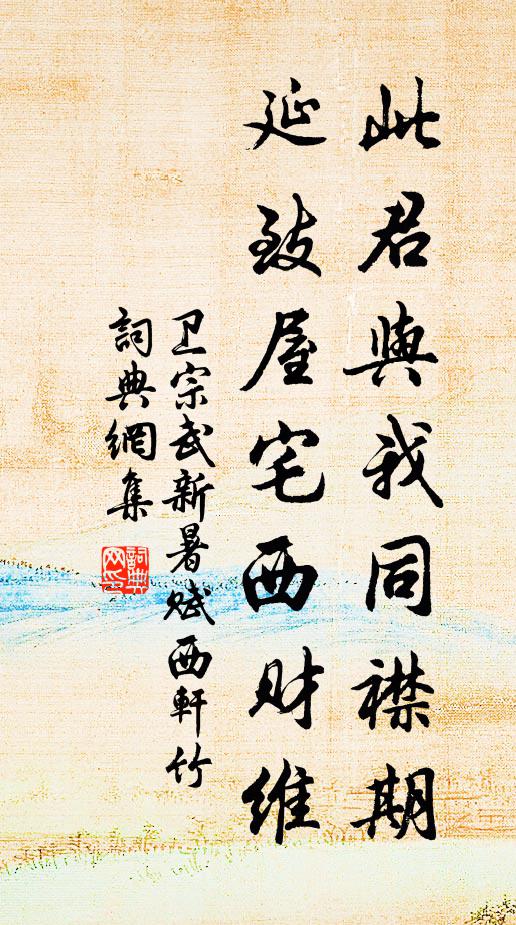 此君與我同襟期
延致屋宅西财維
卫宗武新暑赋西軒竹
詞典網集
詞典網印